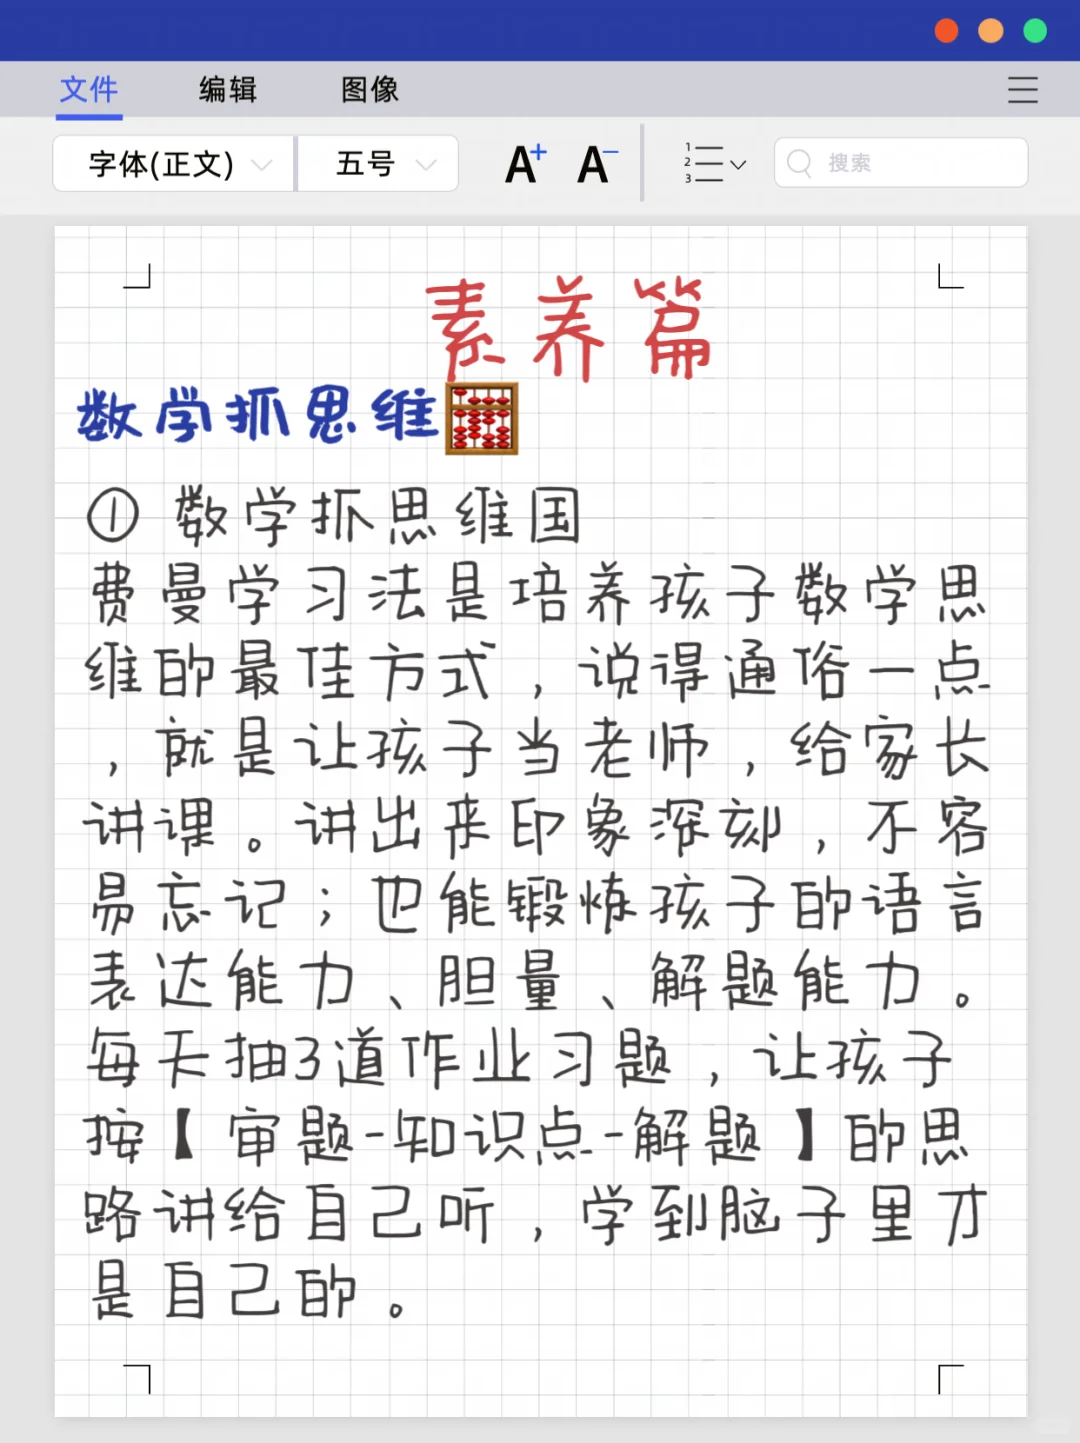 文件 编辑 图像
字体(正文) 五号 A+ A- 1 2 3 搜索
素养篇
数学抓思维
① 数学抓思维国
费曼学习法是培养孩子数学思
维的最佳方式，说得通俗一点
，就是让孩子当老师，给家长
讲课。讲出来印象深刻，不容
易忘记；也能锻炼孩子的语言
表达能力、胆量、解题能力。
每天抽3道作业习题，让孩子
按【审题-知识点-解题】的思
路讲给自己听，学到脑子里才
是自己的。